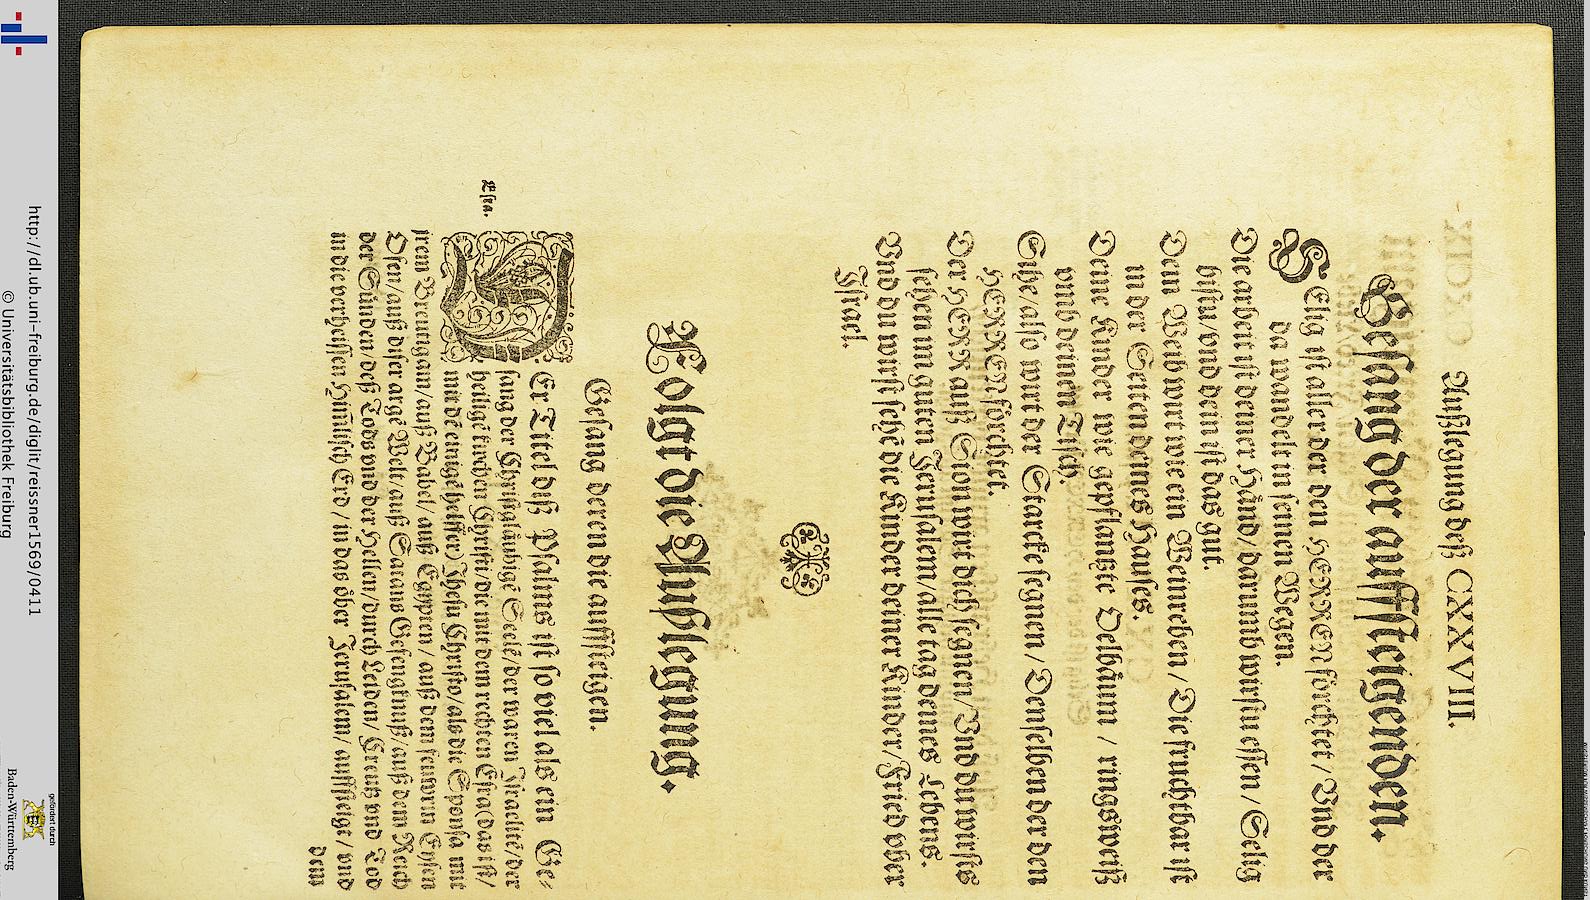 Außlegung deß CXXVIII.
Gesang der auffsteigenden.
SElig ist aller der den HERREN förchtet / Vnd der
da wandelt in seinen Wegen.
Die arbeit ist deiner Händ / darumb wirstu essen / Selig
bistu / vnd dein ist das gut.
Dein Weib wirt wie ein Weinreben / Die fruchtbar ist
in der Seiten deines Hauses.
Deine Kinder wie gepflantzte Oelbäum / ringsweiß
vmb deinen Tisch.
Sihe / also wirt der Starcke segnen / Denselben der den
HERREN förchtet.
Der HERR auß Sion wirt dich segnen / Vnd du wirsts
sehen im guten Jerusalem / alle tag deines Lebens.
Vnd du wirst sehẽ die Kinder deiner Kinder / Fried vber
Israel.
Folgt die Außlegung.
Gesang deren die auffsteigen.
Esra.
DEr Titel diß Psalms ist so viel als ein Ge-
sang der Christgläubigẽ Seelẽ / der waren Israelitẽ / der
heiligẽ kirchen Christi / die mit dem rechten Esra (das ist /
mit dẽ einigẽ helffer Jhesu Christo / als die Sponsa mit
jrem Breutgam / auß Babel / auß Egypten / auß dem feuwrin Eysen
Ofen / auß diser arge Welt / auß Satans Gefengknuß / auß dem Reich
der Sünden / deß Tods vnd der Hellen / durch Leiden / Creutz vnd Tod
in die verheissen Himlisch Erd / in das öber Jerusalem / auffsteigt / vnd
dem
http://dl.ub.uni-freiburg.de/diglit/reissner1569/0411
© Universitätsbibliothek Freiburg
gefördert durch
Baden-Württemberg